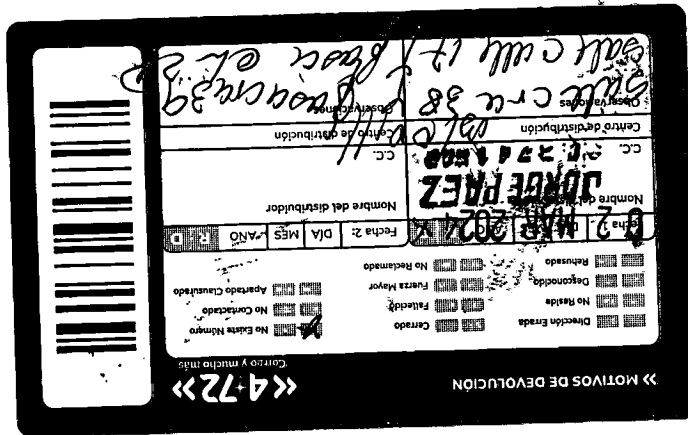 » MOTIVOS DE DEVOLUCIÓN
«4-72»
Correo y mucho más
Dirección Errada
No Reside
Desconocido
Rehusado
Cerrado
Fallecido
Fuerza Mayor
No Reclamado
No Existe Número
No Contactado
Apartado Clausurado
02 MAR 2024
Fecha 2: DÍA MES AÑO R D
JORGE PAEZ
Nombre del distribuidor
C.C.
C.C.
Centro de distribución
Centro de distribución
Observaciones
Observaciones
Sale cra 38
Pasa cra 39
Sale calle 17